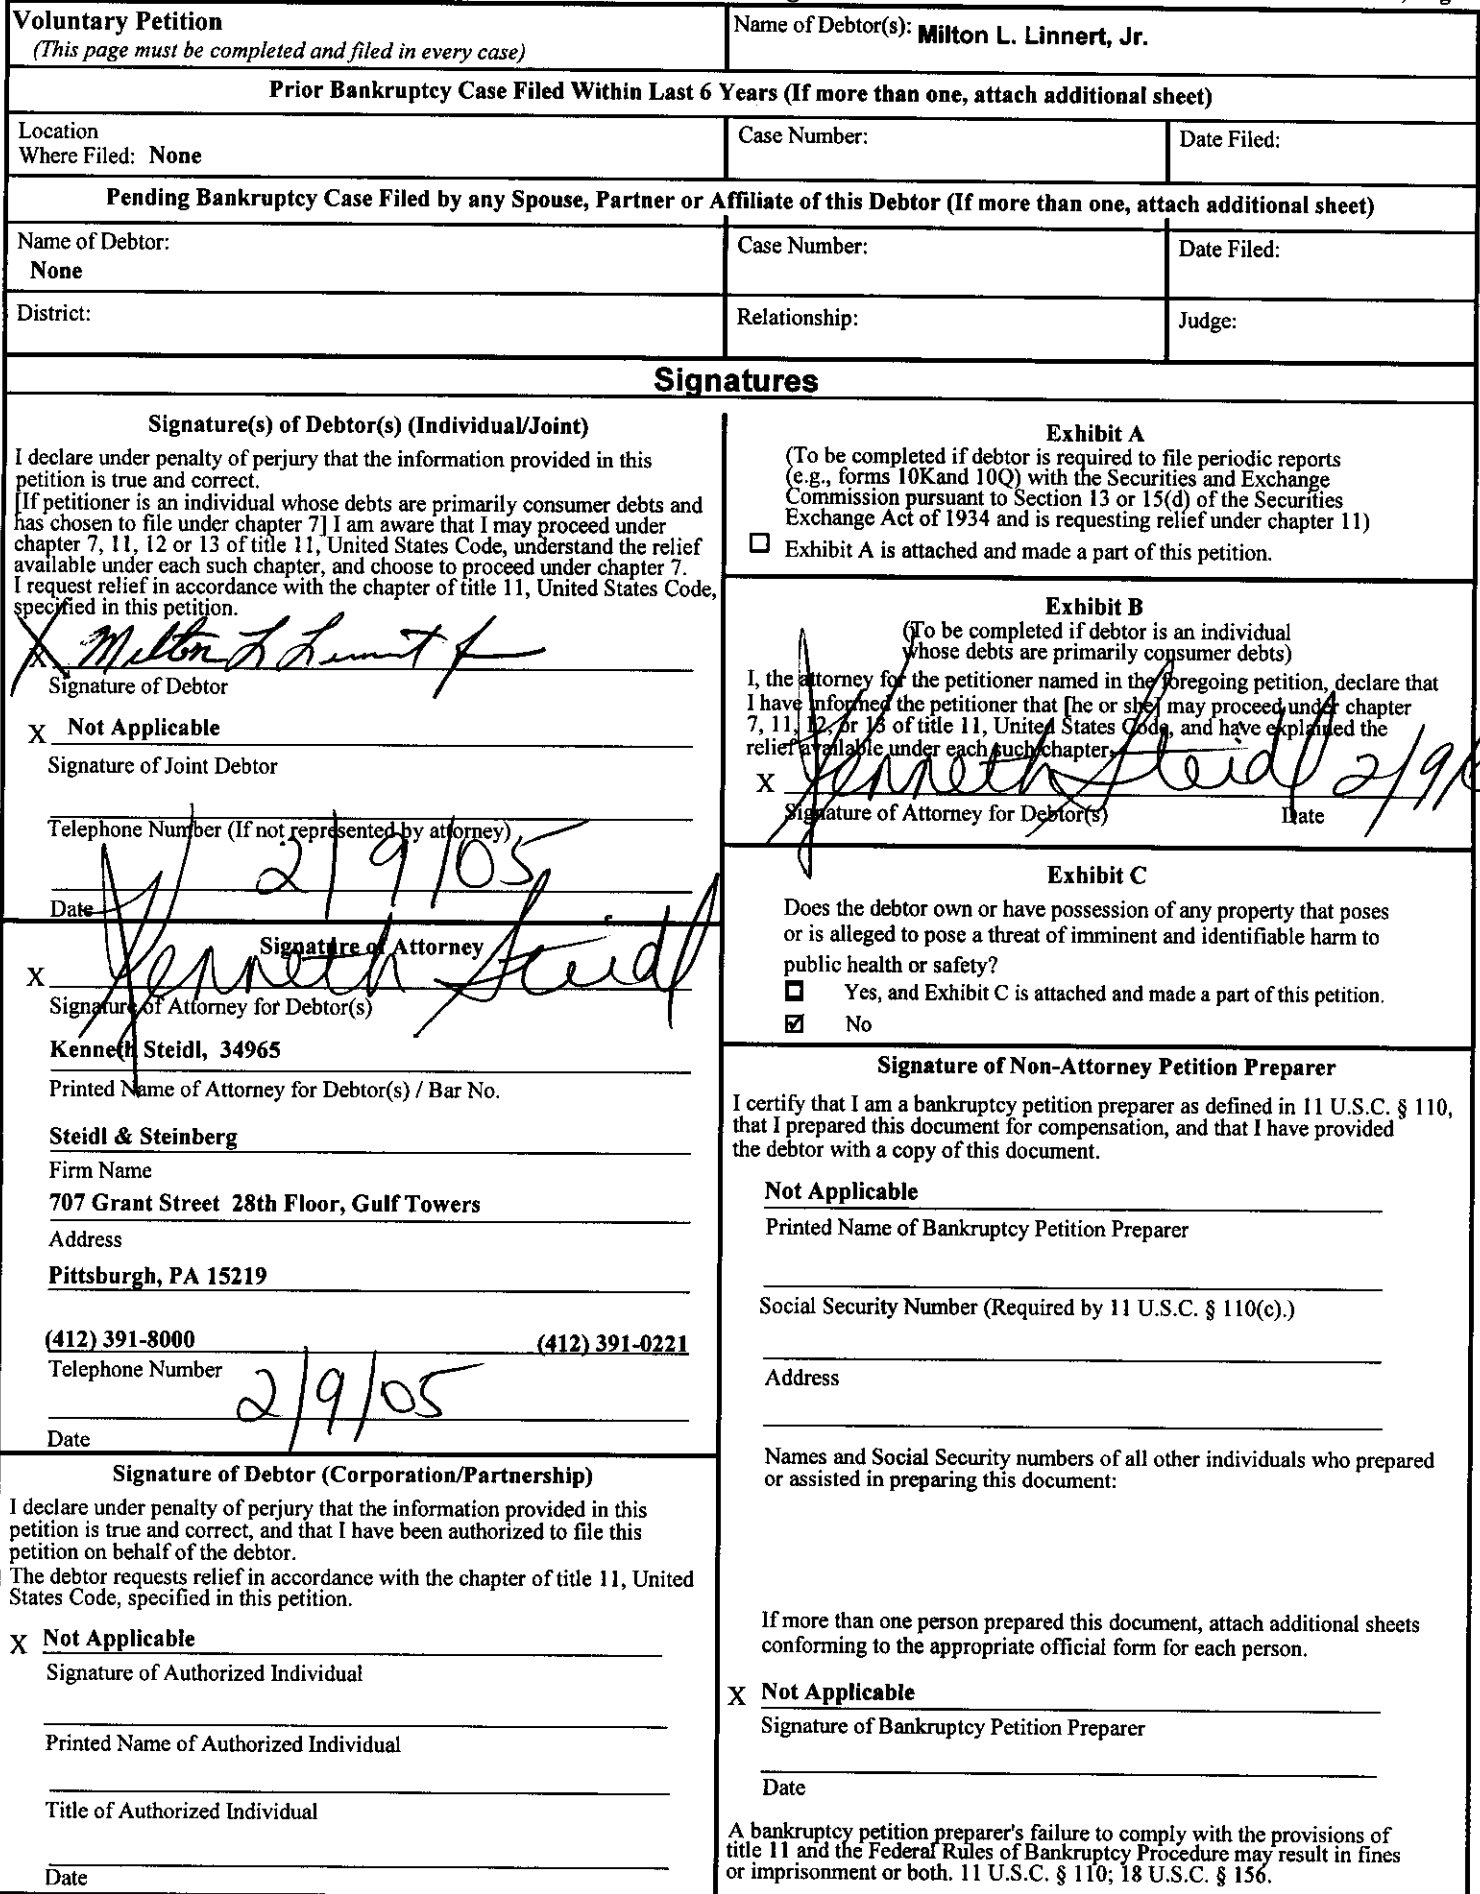 Voluntary Petition
(This page must be completed and filed in every case)
Name of Debtor(s): Milton L. Linnert, Jr.
Prior Bankruptcy Case Filed Within Last 6 Years (If more than one, attach additional sheet)
Location
Where Filed: None
Case Number:
Date Filed:
Pending Bankruptcy Case Filed by any Spouse, Partner or Affiliate of this Debtor (If more than one, attach additional sheet)
Name of Debtor:
None
Case Number:
Date Filed:
District:
Relationship:
Judge:
Signatures
Signature(s) of Debtor(s) (Individual/Joint)
I declare under penalty of perjury that the information provided in this
petition is true and correct.
[If petitioner is an individual whose debts are primarily consumer debts and
has chosen to file under chapter 7] I am aware that I may proceed under
chapter 7, 11, 12 or 13 of title 11, United States Code, understand the relief
available under each such chapter, and choose to proceed under chapter 7.
I request relief in accordance with the chapter of title 11, United States Code,
specified in this petition.
X Milton L Linnert Jr
Signature of Debtor
X Not Applicable
Signature of Joint Debtor
Telephone Number (If not represented by attorney)
2/9/05
Date
Signature of Attorney
X Kenneth Steidl
Signature of Attorney for Debtor(s)
Kenneth Steidl, 34965
Printed Name of Attorney for Debtor(s) / Bar No.
Steidl & Steinberg
Firm Name
707 Grant Street 28th Floor, Gulf Towers
Address
Pittsburgh, PA 15219
(412) 391-8000 (412) 391-0221
Telephone Number
2/9/05
Date
Signature of Debtor (Corporation/Partnership)
I declare under penalty of perjury that the information provided in this
petition is true and correct, and that I have been authorized to file this
petition on behalf of the debtor.
The debtor requests relief in accordance with the chapter of title 11, United
States Code, specified in this petition.
X Not Applicable
Signature of Authorized Individual
Printed Name of Authorized Individual
Title of Authorized Individual
Date
Exhibit A
(To be completed if debtor is required to file periodic reports
(e.g., forms 10Kand 10Q) with the Securities and Exchange
Commission pursuant to Section 13 or 15(d) of the Securities
Exchange Act of 1934 and is requesting relief under chapter 11)
Exhibit A is attached and made a part of this petition.
Exhibit B
(To be completed if debtor is an individual
whose debts are primarily consumer debts)
I, the attorney for the petitioner named in the foregoing petition, declare that
I have informed the petitioner that [he or she] may proceed under chapter
7, 11, 12, or 13 of title 11, United States Code, and have explained the
relief available under each such chapter.
X Kenneth Steidl 2/9/
Signature of Attorney for Debtor(s) Date
Exhibit C
Does the debtor own or have possession of any property that poses
or is alleged to pose a threat of imminent and identifiable harm to
public health or safety?
Yes, and Exhibit C is attached and made a part of this petition.
No
Signature of Non-Attorney Petition Preparer
I certify that I am a bankruptcy petition preparer as defined in 11 U.S.C. § 110,
that I prepared this document for compensation, and that I have provided
the debtor with a copy of this document.
Not Applicable
Printed Name of Bankruptcy Petition Preparer
Social Security Number (Required by 11 U.S.C. § 110(c).)
Address
Names and Social Security numbers of all other individuals who prepared
or assisted in preparing this document:
If more than one person prepared this document, attach additional sheets
conforming to the appropriate official form for each person.
X Not Applicable
Signature of Bankruptcy Petition Preparer
Date
A bankruptcy petition preparer's failure to comply with the provisions of
title 11 and the Federal Rules of Bankruptcy Procedure may result in fines
or imprisonment or both. 11 U.S.C. § 110; 18 U.S.C. § 156.